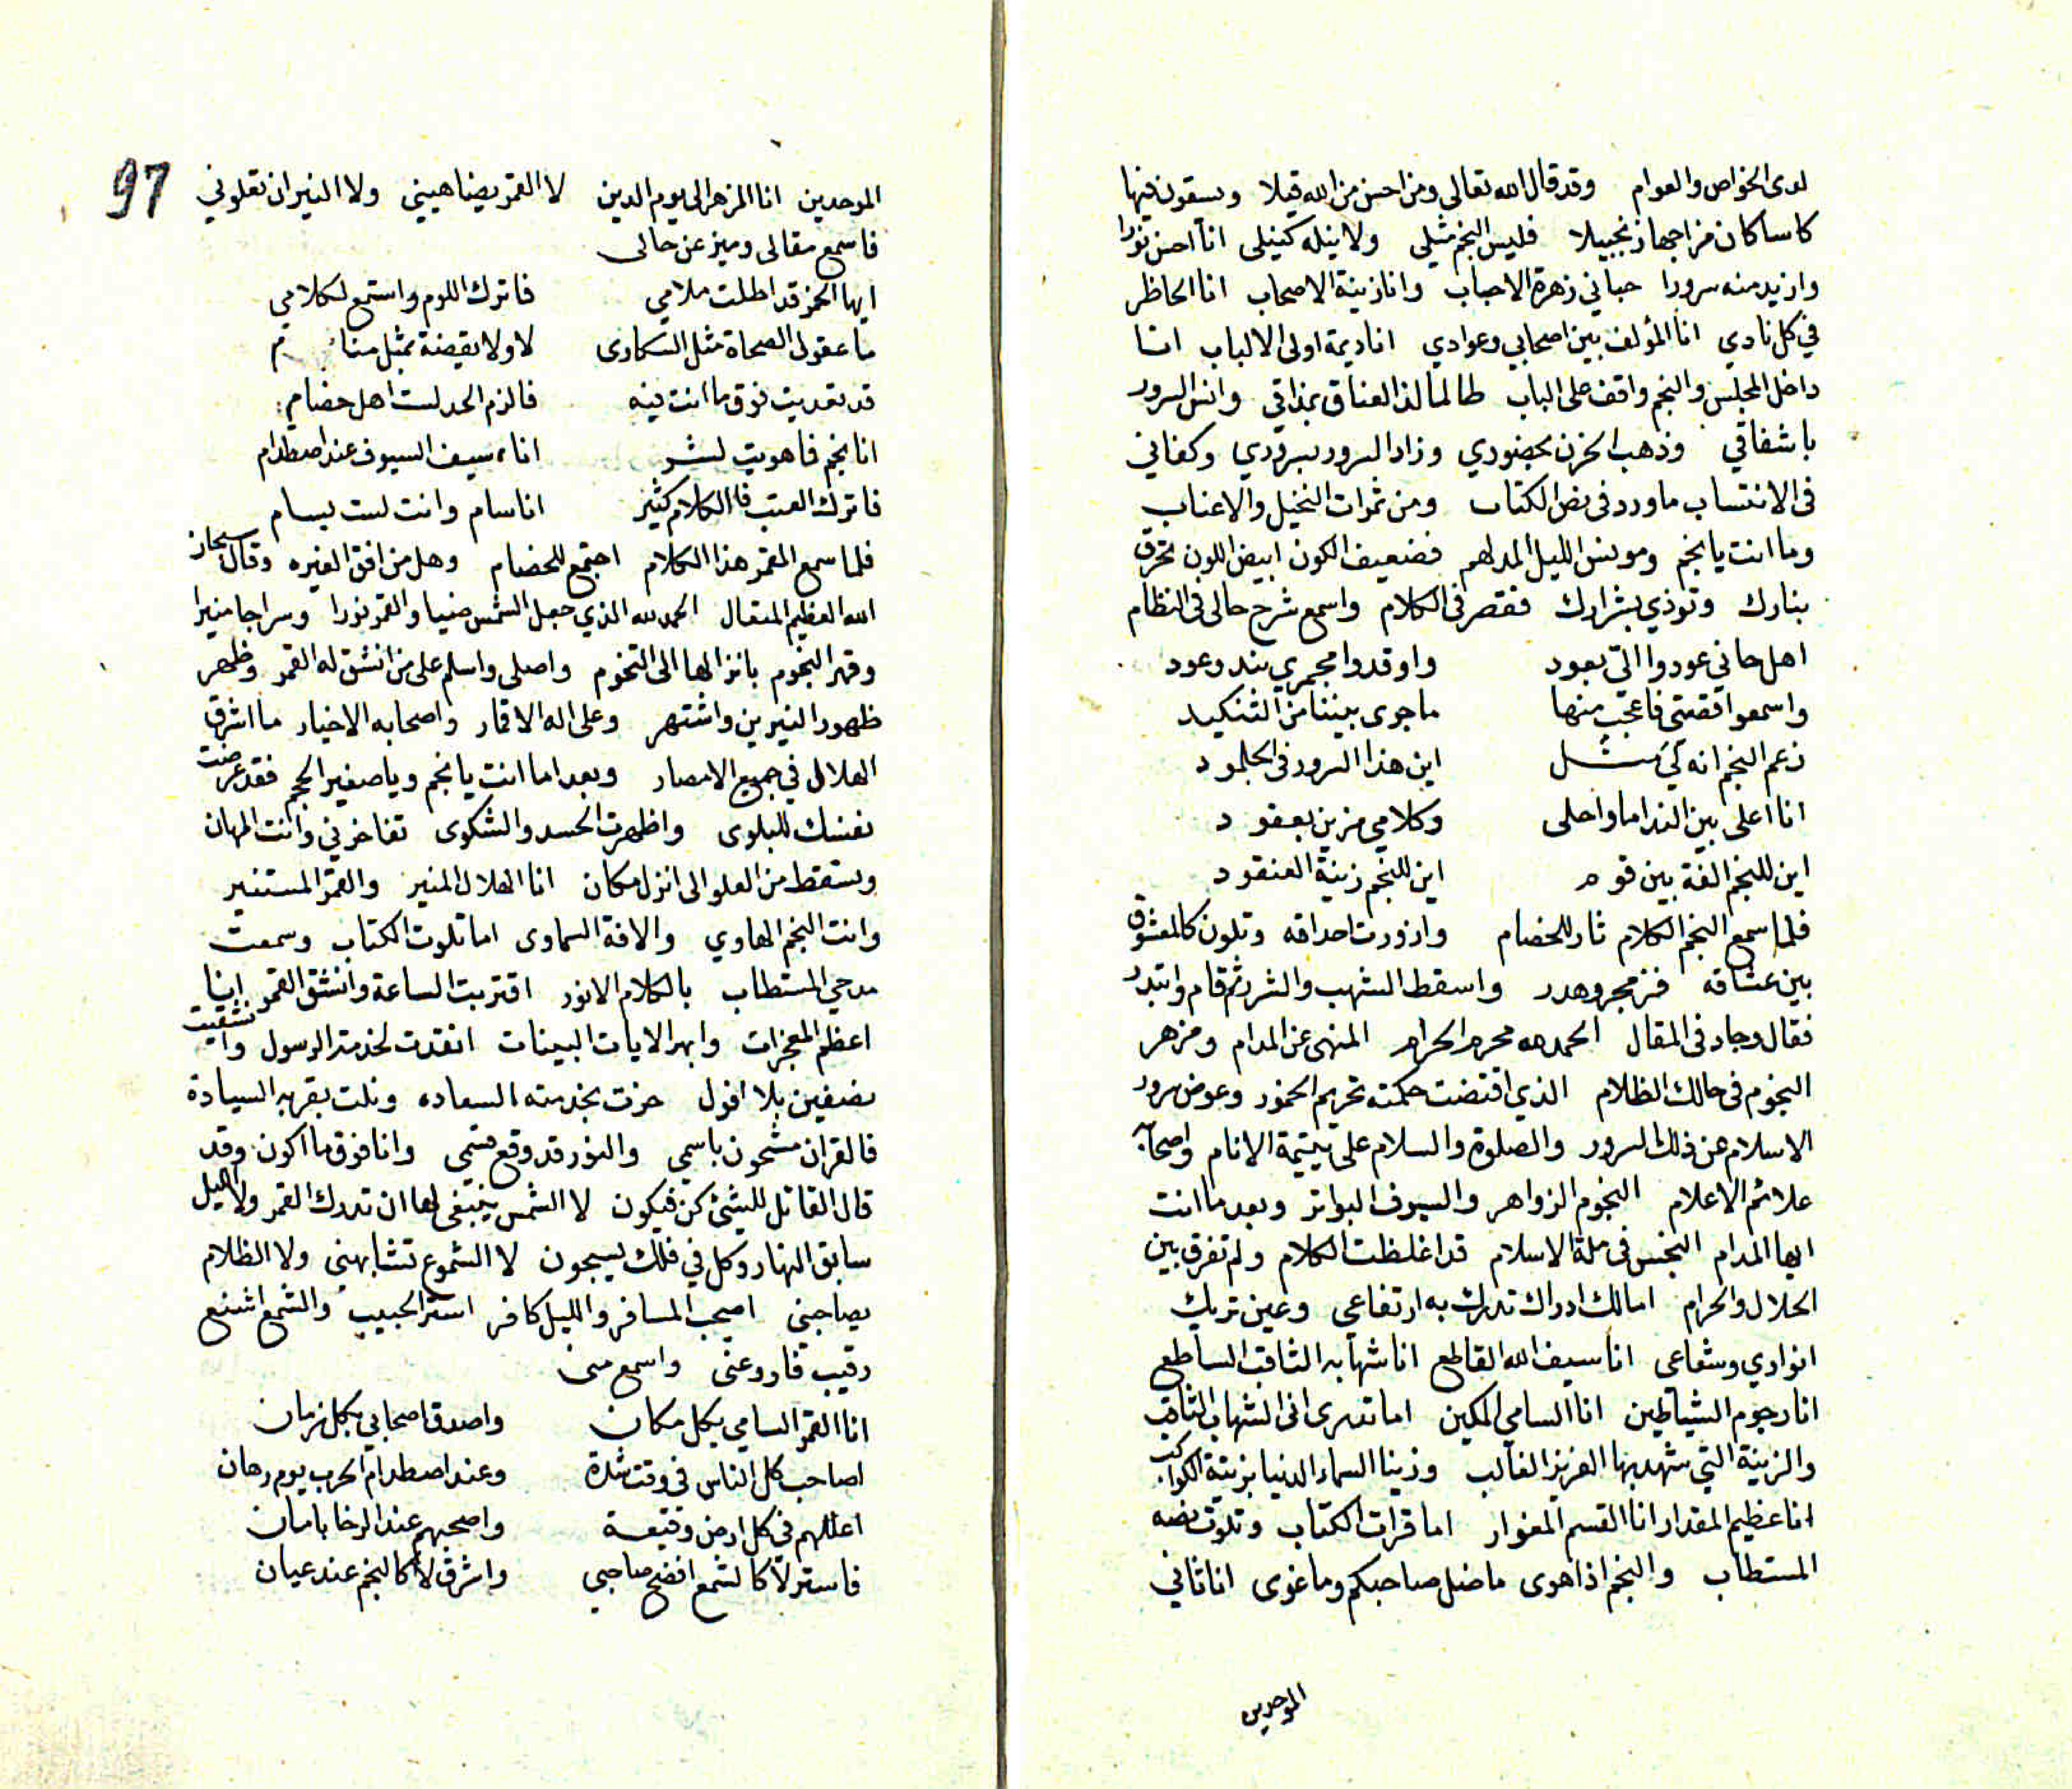 لدى الخواص والعوام وقد قال الله تعالى ومن احسن من الله قيلا ويسقون فيها
كاسا كان مزاجها زنجبيلا فليس النجم مثلي ولا نيله كنيلي انا احسن نورا
وازيد منه سرورا حباني زهرة الاحباب وانا زينة الاصحاب انا الحاظر
في كل نادي انا المؤلف بين اصحابي وعوادي انا ديمة اولى الالباب انا
داخل المجلس والنجم واقف على الباب طالما لذ العناق بمذاقي وانس السرور
باشفاقي وذهب الحزن بحضوري وزاد السرور بسروري وكفاني
في الانتساب ما ورد في نص الكتاب ومن ثمرات النخيل والاعناب
وما انت يا نجم ومونس الليل المدلهم فضعيف الكون ابيض اللون تحرق
بنارك وتوذي بشرارك فقصر في الكلام واسمع شرح حالى في النظام
اهل حاني عودوا الىّ بعود واوقدوا مجمري بند وعود
واسمعوا قصتي فاعجب منها ما جرى بيننا من التنكيد
زعم النجم انه لي مثل اين هذا السرور في الجلمود
انا اعلى بين الندا ما واحلى وكلامي مزين بعقود
اين للنجم الفة بين قوم اين للنجم زينة العنقود
فلما سمع النجم الكلام ثار للخصام وازورت احداقه وتلون كالمعشوق
بين عشاقه فزمجر وهدر واسقط الشهب والشرر ثم قام وابتدر
فقال وجاد في المقال الحمد لله محرم الحرام المنهى عن المدام ومزهر
النجوم في حالك الظلام الذي اقتضت حكمته تحريم الخمور وعوض سرور
الاسلام عن ذلك السرور والصلوة والسلام على يتيمة الانام واصحابه
علائم الاعلام النجوم الزواهر والسيوف البواتر وبعد ما انت
ايها المدام النجس في ملة الاسلام قد اغلظت الكلام ولم تفرق بين
الحلال والحرام امالك ادراك تدرك به ارتفاعي وعين تريك
انواري وشعاعى انا سيف الله القاطع انا شهابه الثاقب الساطع
انا رجوم الشياطين انا السامي المكين اما تدرى انى الشهاب الثاقب
والزينة التي شهد بها العزيز الغالب وزينا السماء الدنيا بزينة الكواكب
انا عظيم المقدار انا القسم المغوار اما قرات الكتاب وتلوت نصه
المستطاب والنجم اذا هوى ما ضل صاحبكم وما غوى انا ثاني
الموحدين
97
الموحدين انا المزهر الى يوم الدين لا القمر يضاهيني ولا النيران تعلوني
فاسمع مقالى وميز عن حالى
ايها الخمر قد اطلت ملامي فاترك اللوم واستمع لكلامي
ما عقولى الصحاة مثل السكارى لا ولا يقضة بمثل منام
قد تعديت فوق ما انت فيه فالزم الحد لست اهل خصام
انا نجم فاهويت لشر اناء سيف السيوف عند اصطدام
فاترك العتب فالكلام كثير انا سام وانت لست بسام
فلما سمع القمر هذا الكلام اجتمع للخصام وهل من افق الغيره وقال سبحان
الله العظيم المتعال الحمد لله الذي جعل الشمس ضيا والقمر نورا وسراجا منيرا
وقهر النجوم بانزالها الى التخوم واصلى واسلم على من انشق له القمر وظهر
ظهور النيرين واشتهر وعلى اله الاقمار واصحابه الاخيار ما اشرق
الهلال في جميع الامصار وبعد اما انت يا نجم ويا صغير الحجم فقد عرضت
نفسك للبلوى واظهرت الحسد والشكوى تفاخرني وانت المهان
وتسقط من العلو الى انزل مكان انا الهلال المنير والقمر المستنير
وانت النجم الهاوي والافة السماوى اما تلوت الكتاب وسمعت
مدحي المستطاب بالكلام الانور اقتربت الساعة وانشق القمر انا
اعظم المعجزات وابهر الايات البينات انقدت لخدمة الرسول وانشقيت
نصفين بلا افول حزت بخدمته السعاده ونلت بقربه السيادة
فالقران مشحون باسمي والنور قد وقع قسمي وانا فوق ما اكون وقد
قال القائل للشئ كن فيكون لا الشمس ينبغى لها ان تدرك القمر ولا الليل
سابق النهار وكل في فلك يسبحون لا الشموع تشابهني ولا الظلام
يصاحبني اصحب المسافر والليل كافر استر الحبيب والشمع اشنع
رقيب فاروعنى واسمع منى
انا القمر السامي بكل مكان واصدق اصحابي بكل زمان
اصاحب كل الناس في وقت شدة وعند اصطدام الحرب يوم رهان
اعللهم في كل ارض وقيعة واصحبهم عند الرخا بامان
فاستر لا كالشمع افضح صاحبي واشرق لا كالنجم عند عيان